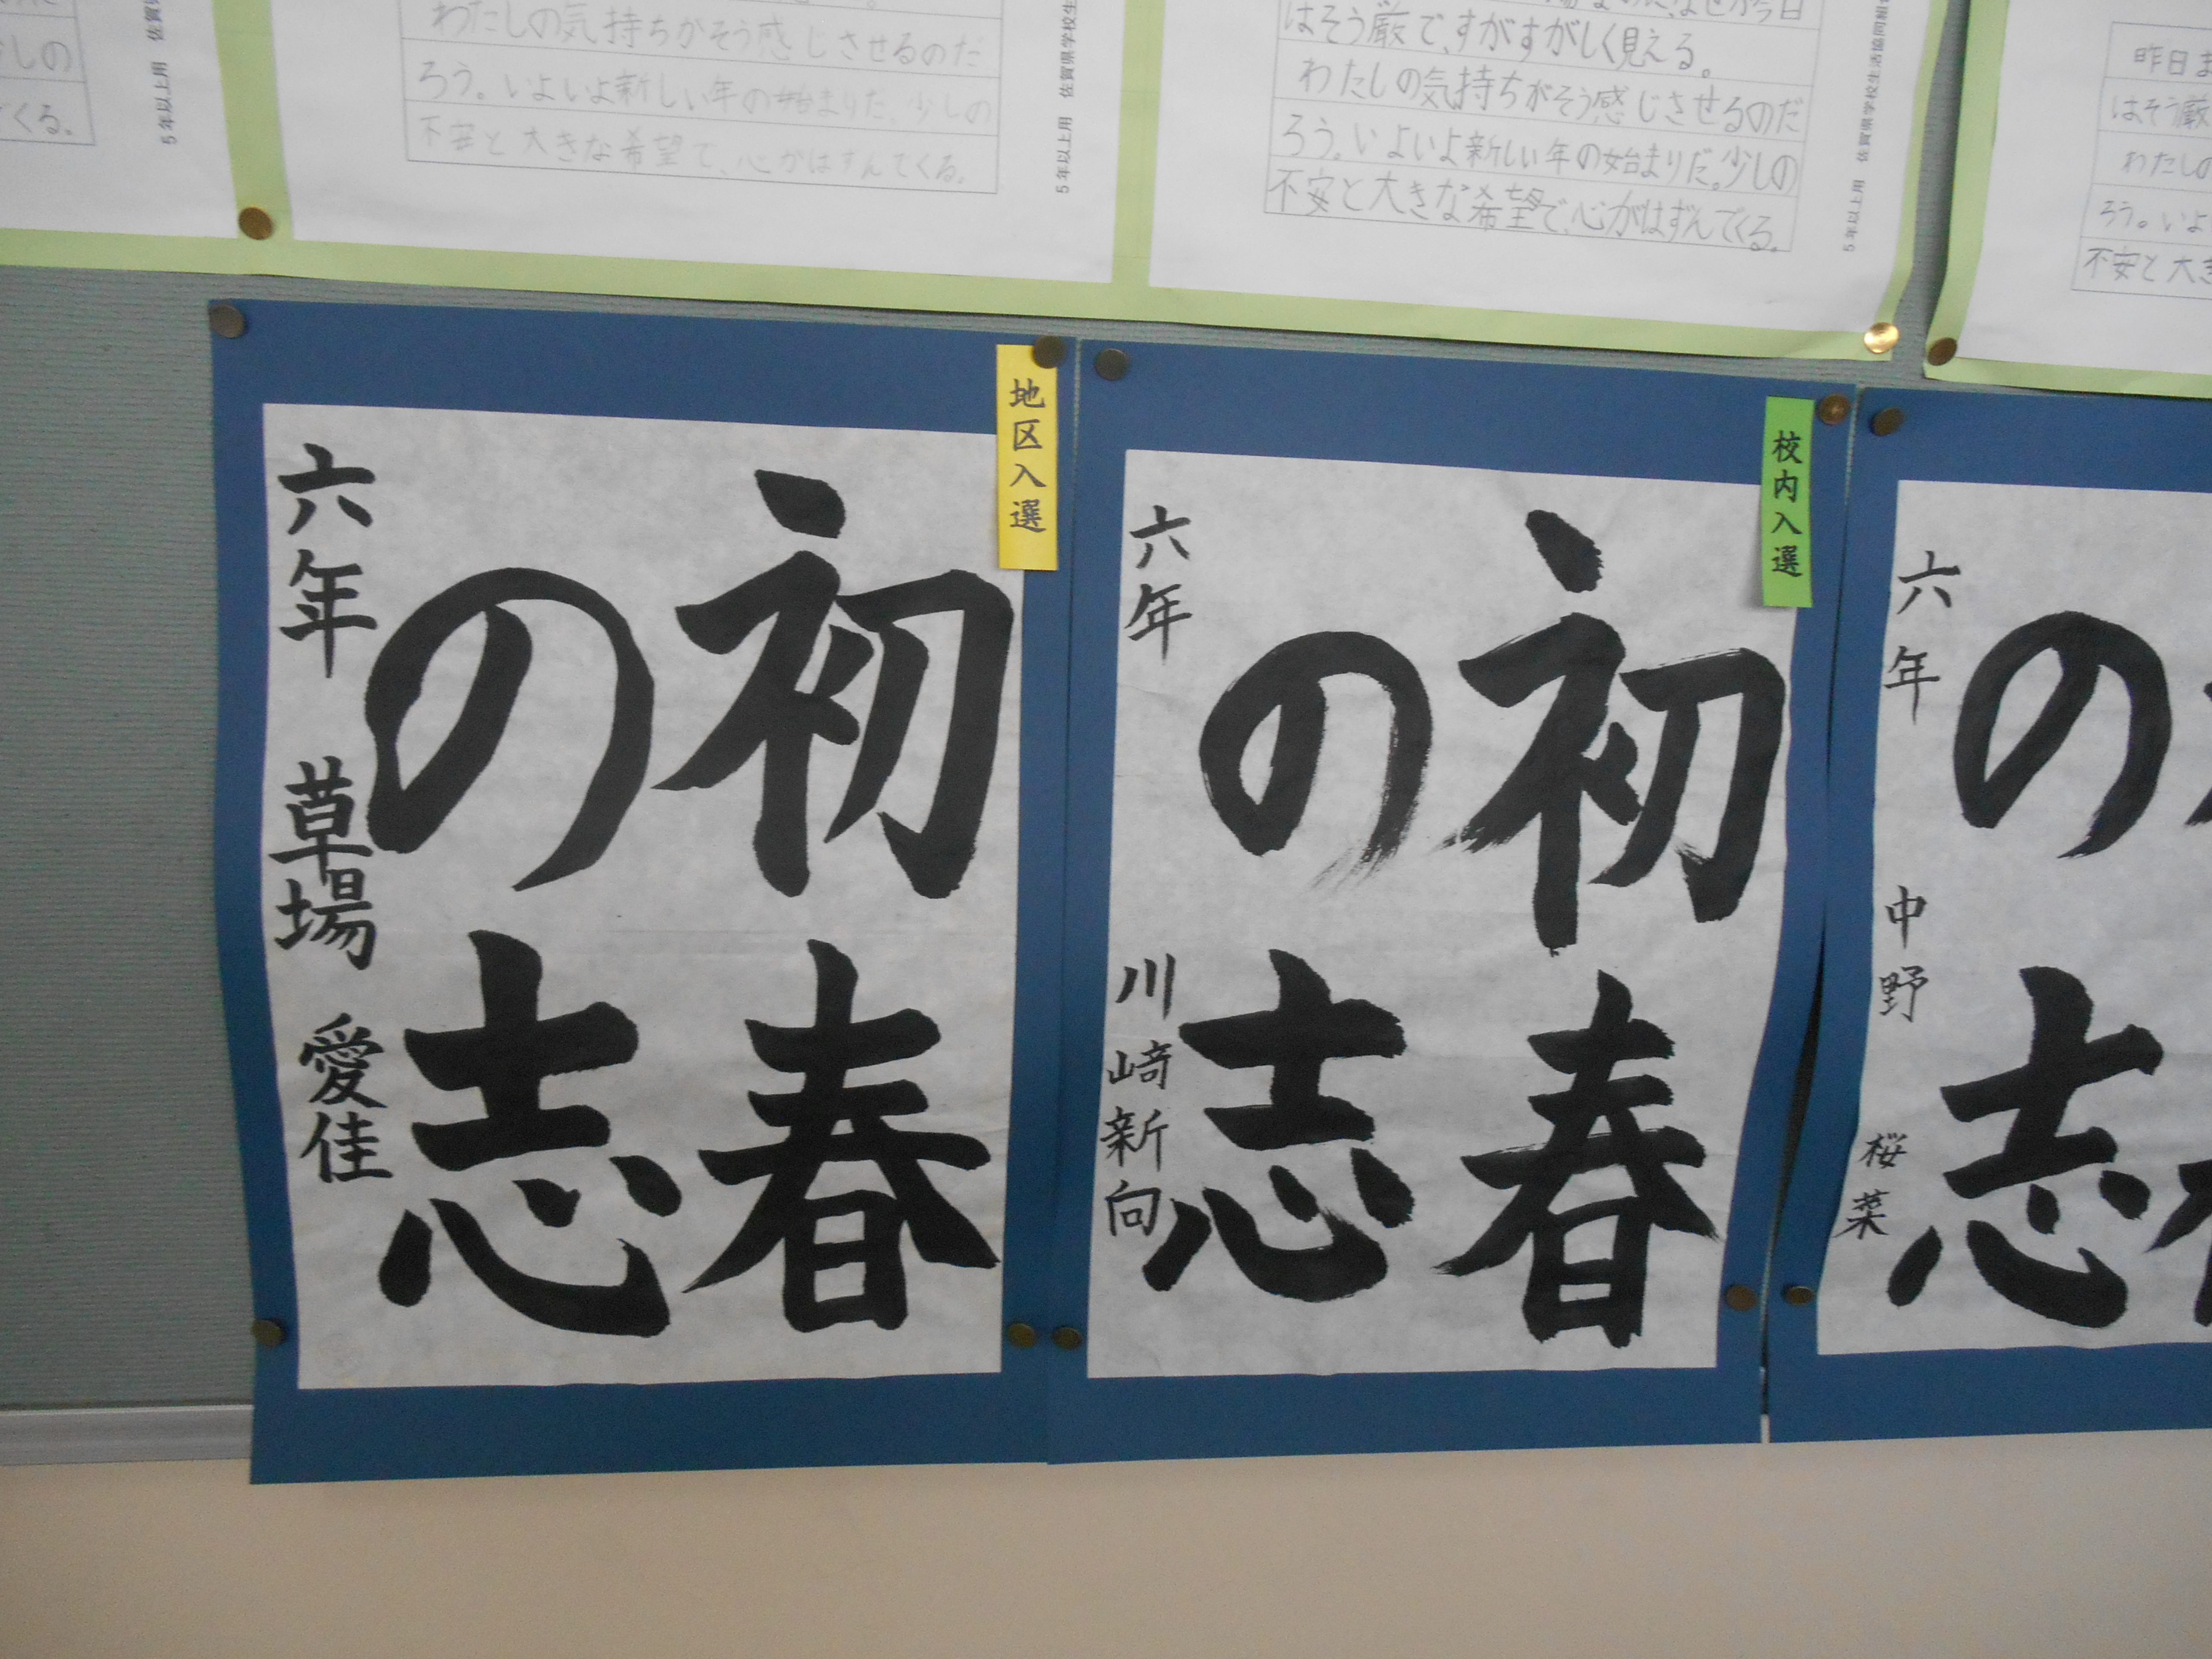 しの
てくる。
5年以上用
わたしの気持ちがそう感じさせるのだ
ろう。いよいよ新しい年の始まりだ、少しの
不安と大きな希望で、心がはずんでくる。
5年以上用 佐賀県学校生
はそう厳で、すがすがしく見える。
わたしの気持ちがそう感じさせるのだ
ろう。いよいよ新しい年の始まりだ。少しの
不安と大きな希望で、心がはずんでくる。
5年以上用 佐賀県学校生活協同組
昨日ま
はそう厳
わたしの
ろう。いよ
不安と大き
地区入選
初春
の志
六年 草場 愛佳
校内入選
初春
の志
六年 川崎新向
の志
六年 中野 桜菜